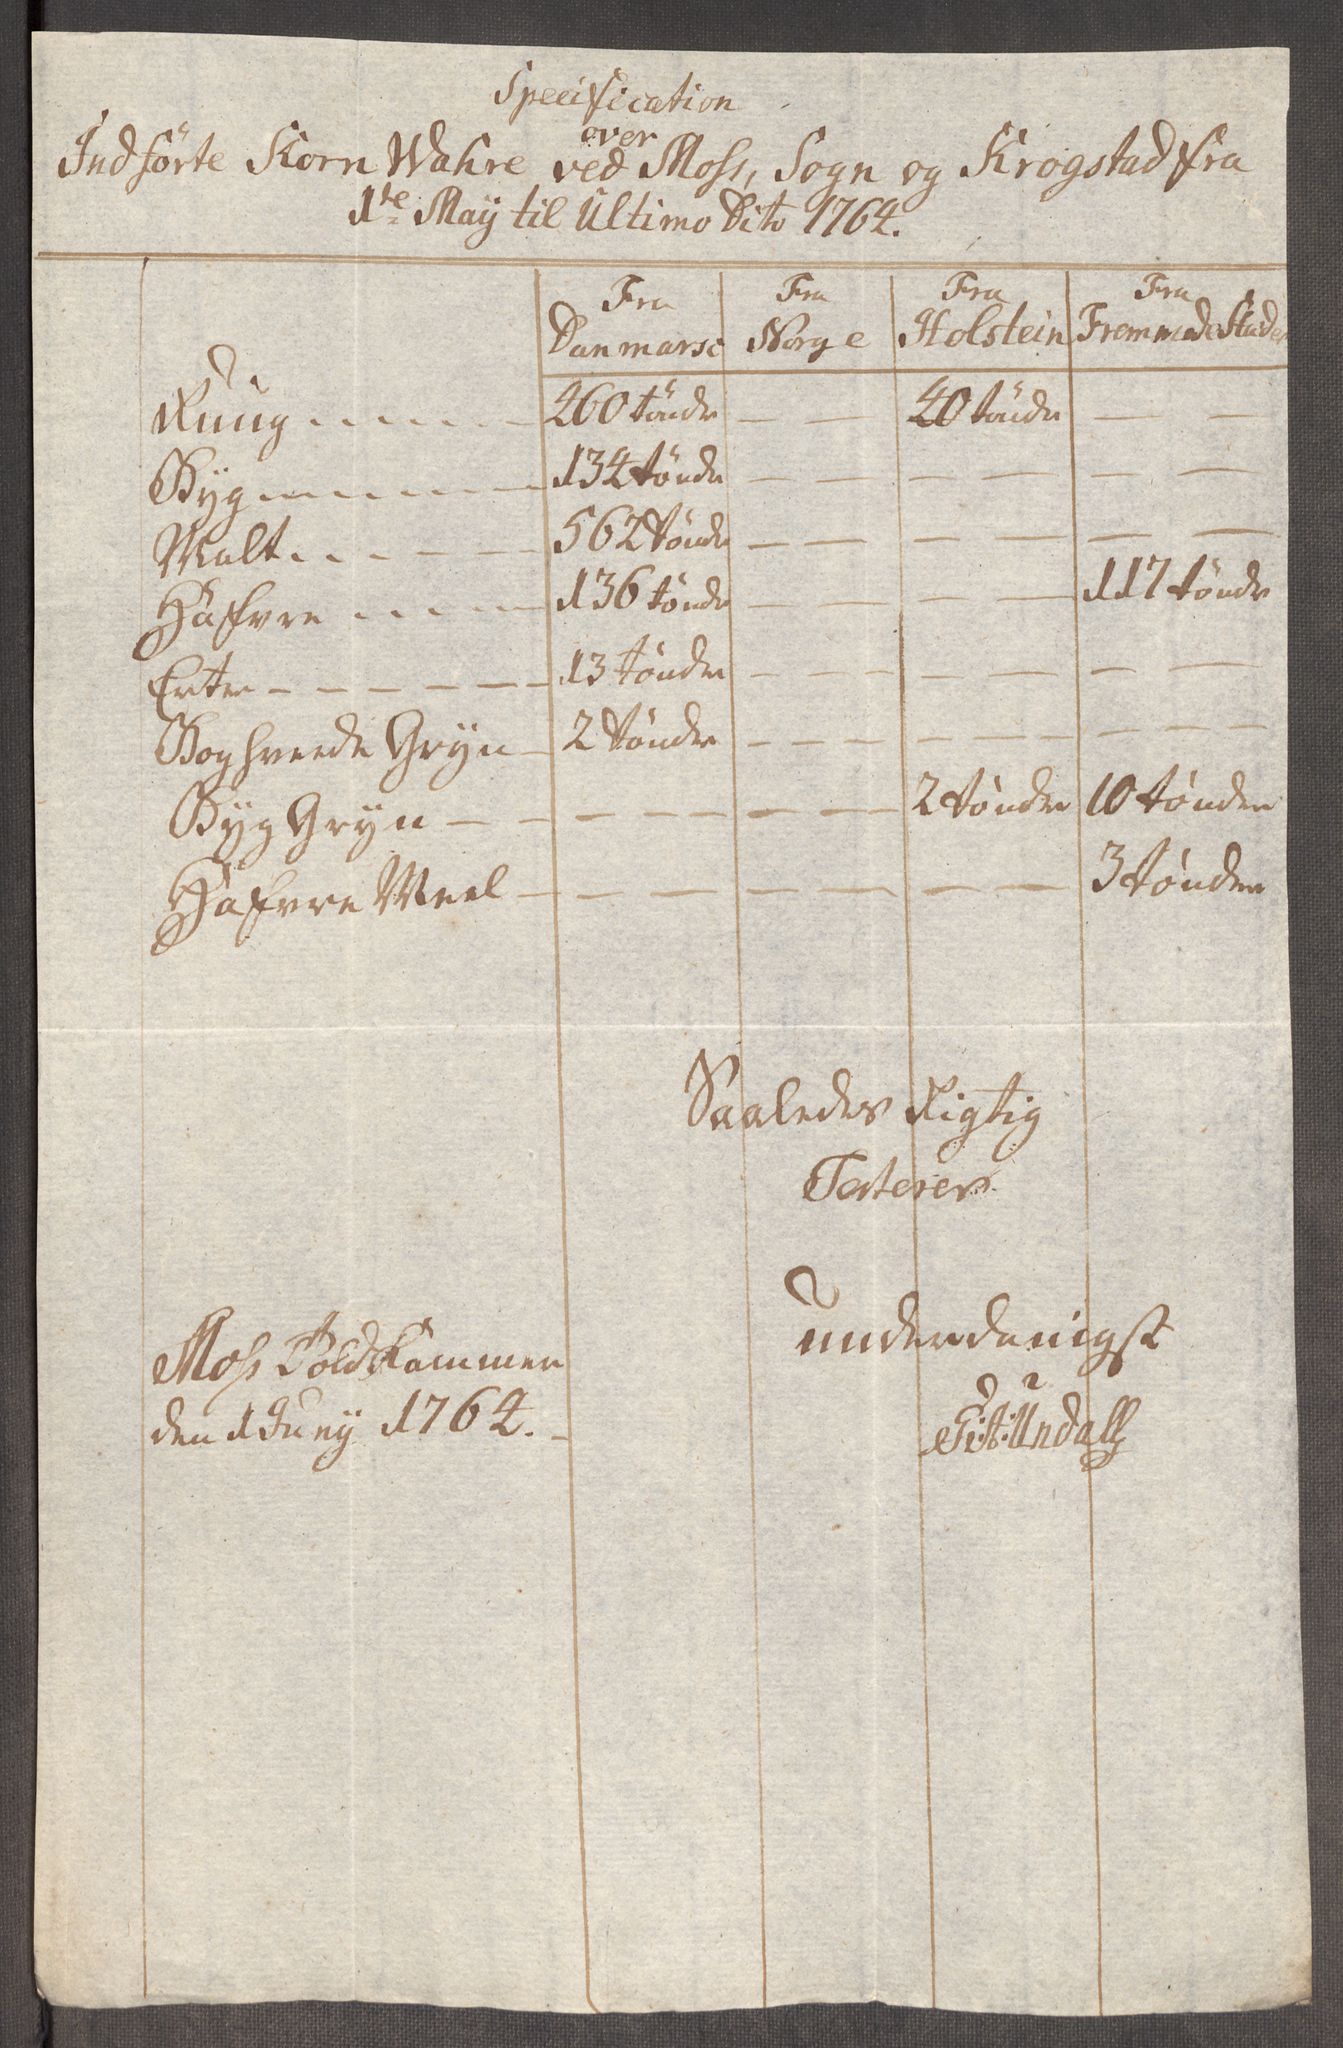 Specification
over
Indförte Korn Wahre ved Moss, Sogn og Krogstad fra
1te May til Ultimo Dito 1764.
Fra Danmarc Fra Norge Fra Holstein Fra Fremmede Stæder
Ruug 460 tönder — — 40 tönder — —
Byg 134 tönder — — — — — —
Malt 562 tönder — — — — — —
Hafvre 136 tönder — — — — 117 tönder
Erter 13 tönder — — — — — —
Boghvede Gryn 2 tönder — — — — — —
Byg Gryn — — — — 2 tönder 10 tönder
Hafvre Meel — — — — — — 3 tönder
Saaledes Rigtig
Testeres
underdanigst
Moss Told Kammer
den 1 Juny 1764.
Undall